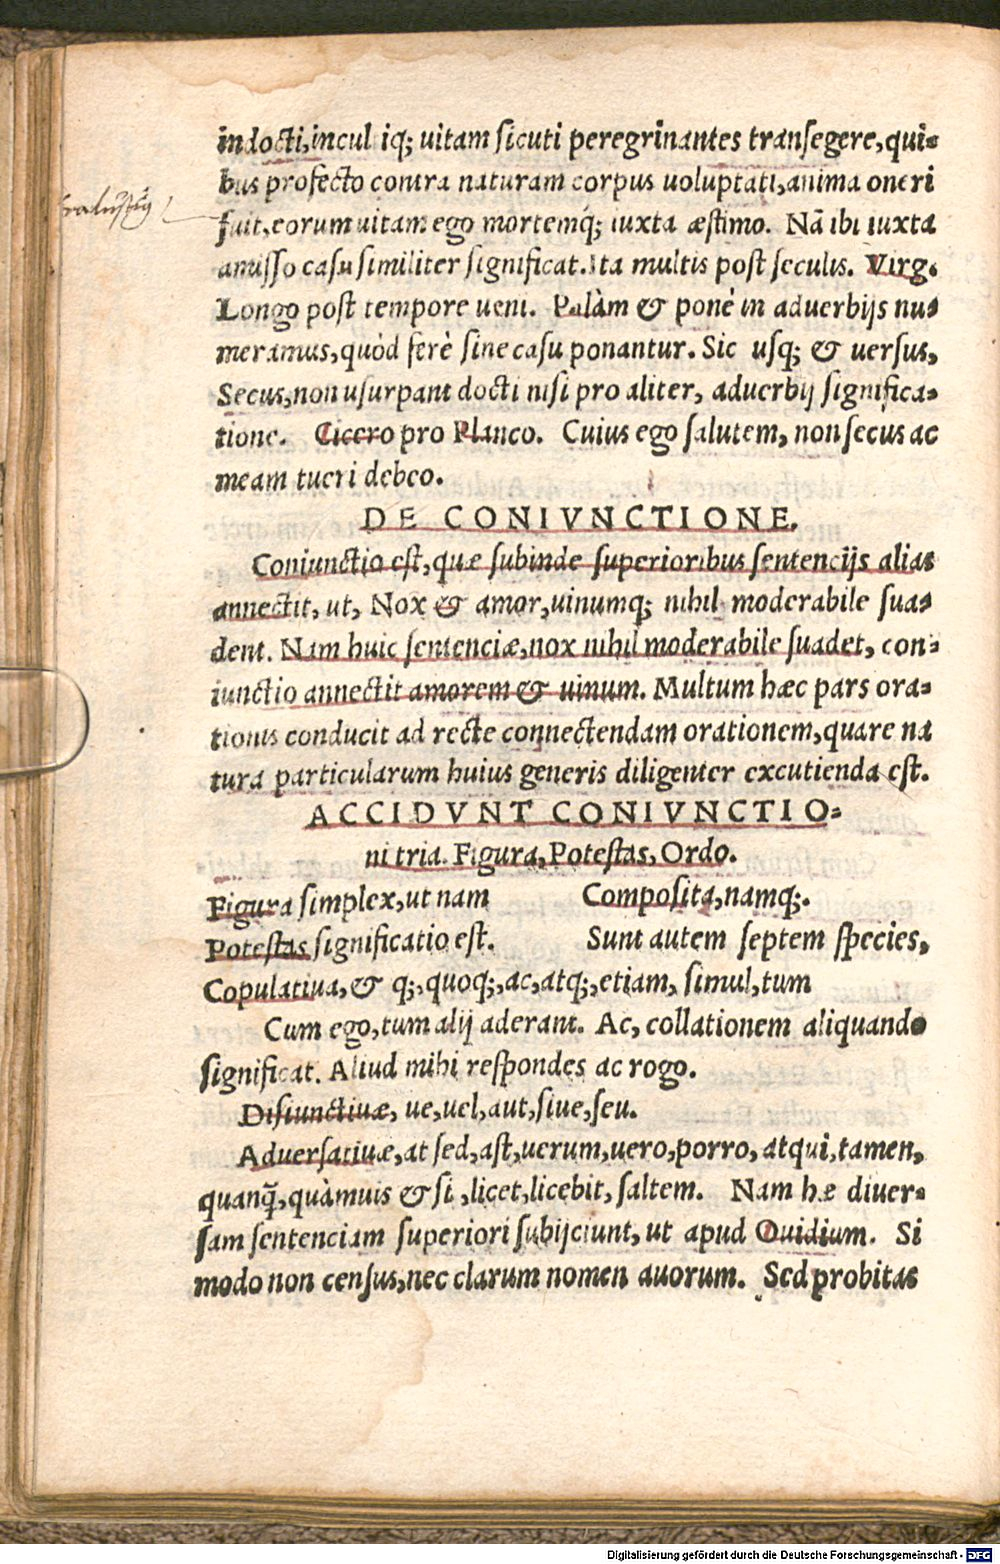 indocti, incul iq; uitam sicuti peregrinantes transegere, qui-
bus profecto contra naturam corpus uoluptati, anima oneri
fuit, eorum uitam ego mortemq́; iuxta æstimo. Nā ibi iuxta
amisso casu similiter significat. Ita multis post seculis. Virg.
Longo post tempore ueni. Palàm & ponè in aduerbijs nu-
meramus, quòd ferè sine casu ponantur. Sic usq; & uersus,
Secus, non usurpant docti nisi pro aliter, aduerbij significa-
tione. Cicero pro Planco. Cuius ego salutem, non secus ac
meam tueri debeo.
DE CONIVNCTIONE.
Coniunctio est, quæ subinde superioribus sentencijs alias
annectit, ut, Nox & amor, uinumq; nihil moderabile sua-
dent. Nam huic sentenciæ, nox nihil moderabile suadet, con-
iunctio annectit amorem & uinum. Multum hæc pars ora-
tionis conducit ad recte connectendam orationem, quare na
tura particularum huius generis diligenter excutienda est.
ACCIDVNT CONIVNCTIO-
ni tria. Figura, Potestas, Ordo.
Figura simplex, ut nam Composita, namq;.
Potestas significatio est. Sunt autem septem species,
Copulatiua, & q;, quoq;, ac, atq;, etiam, simul, tum
Cum ego, tum alij aderant. Ac, collationem aliquando
significat. Aliud mihi respondes ac rogo.
Disiunctiuæ, ue, uel, aut, siue, seu.
Aduersatiuæ, at sed, ast, uerum, uero, porro, atqui, tamen,
quanq̃, quàmuis & si, licet, licebit, saltem. Nam hæ diuer-
sam sentenciam superiori subijciunt, ut apud Ouidium. Si
modo non census, nec clarum nomen auorum. Sed probitas
Digitalisierung gefördert durch die Deutsche Forschungsgemeinschaft - DFG